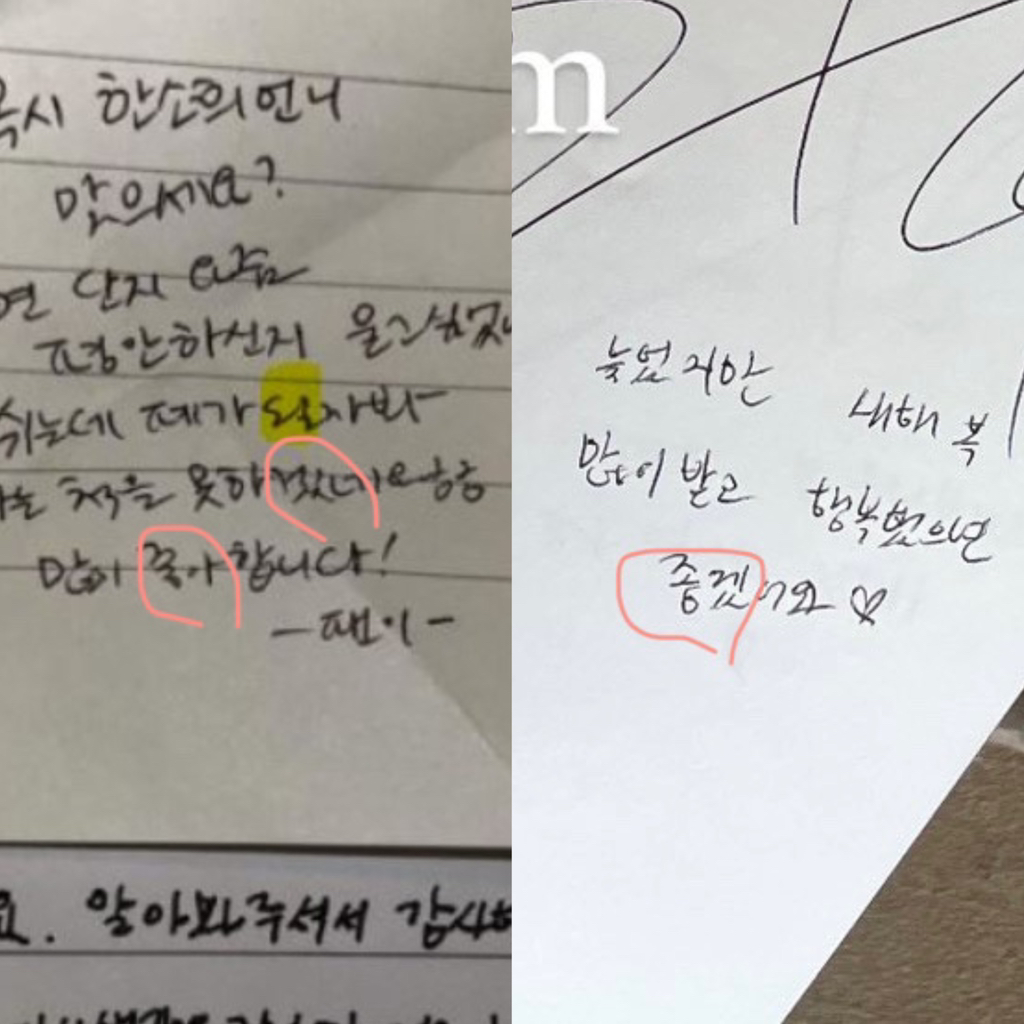 혹시 한소희언니
맞으세요?
단지 요즘
평안하신지
쉬는데 폐가 될까봐
는 척을 못하겠네요 ㅎㅎ
많이 좋아합니다!
-팬이-
요. 알아봐주셔서 감사
m
늦었지만
새해 복
많이 받고
행복했으면
좋겠어요 ♡